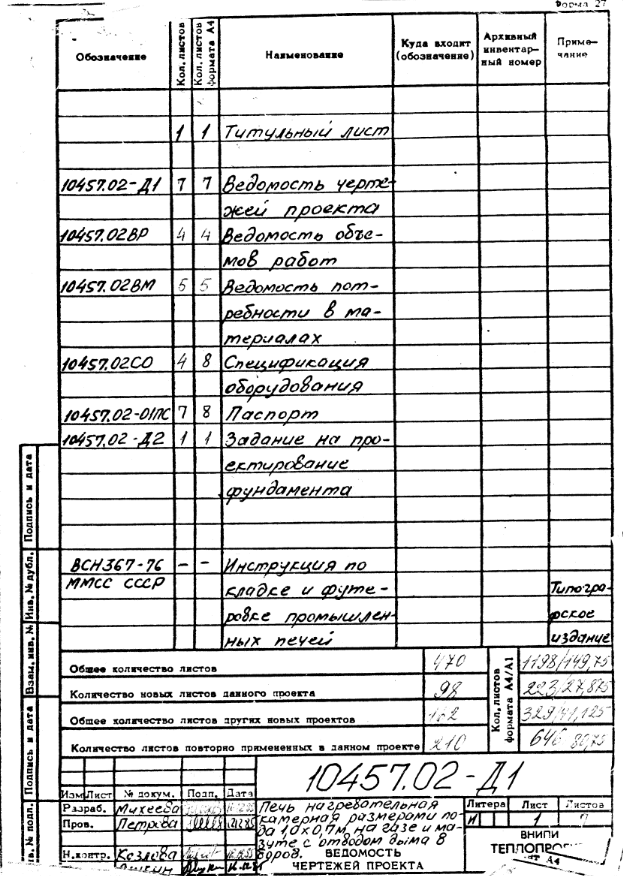 Форма 27
Обозначение
Кол. листов
Кол. листов формата А4
Наименование
Куда входит (обозначение)
Архивный инвентар-ный номер
Приме-чание
1 1 Титульный лист
10457.02-Д1 7 7 Ведомость черте-
жей проекта
10457.02ВР 4 4 Ведомость объе-
мов работ
10457.02ВМ 5 5 Ведомость пот-
ребности в ма-
териалах
10457.02СО 4 8 Спецификация
оборудования
10457.02-01ПС 7 8 Паспорт
10457.02-Д2 1 1 Задание на про-
ектирование
фундамента
ВСН367-76 - - Инструкция по
ММСС СССР кладке и футе- Типогра-
ровке промышлен- фское
ных печей издание
Общее количество листов 470
Количество новых листов данного проекта 98
Общее количество листов других новых проектов 162
Количество листов повторно примененных в данном проекте 210
Кол. листов формата А4/А1
1198/149,75
223/27,875
329/41,125
646
10457.02-Д1
Изм Лист № докум. Подп. Дата
Разраб. Михеева
Пров. Петрова
Н.контр. Козлова
Печь нагревательная
камерная размерами по-
да 1,0х0,7м, на газе и ма-
зуте с отводом дыма в
боров.
ВЕДОМОСТЬ
ЧЕРТЕЖЕЙ ПРОЕКТА
Литера Лист Листов
И 1
ВНИПИ
Подпись и дата
Инв. № дубл.
Взам. инв. №
Подпись и дата
№ подл.